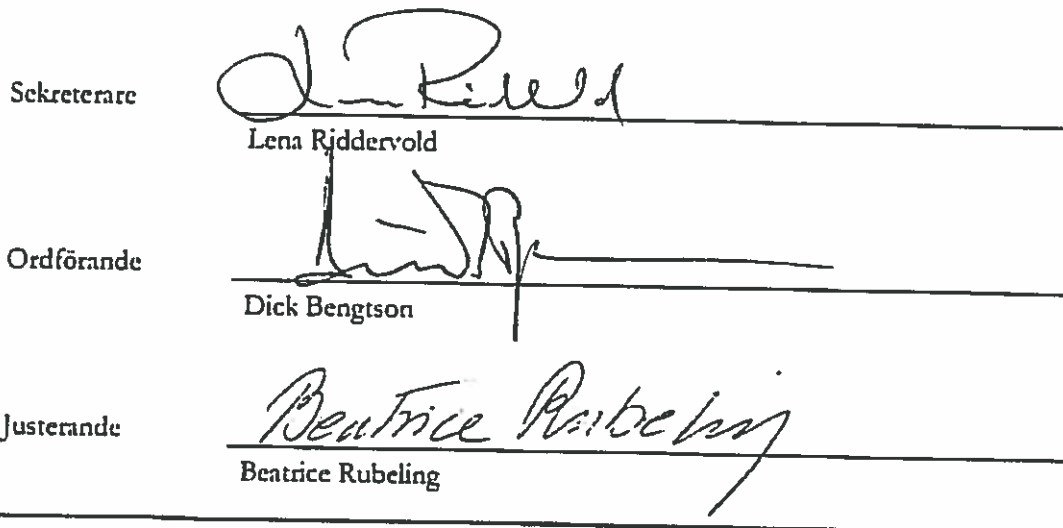 Sekreterare
Lena Riddervold
Ordförande
Dick Bengtson
Justerande
Beatrice Rubeling
Beatrice Rubeling